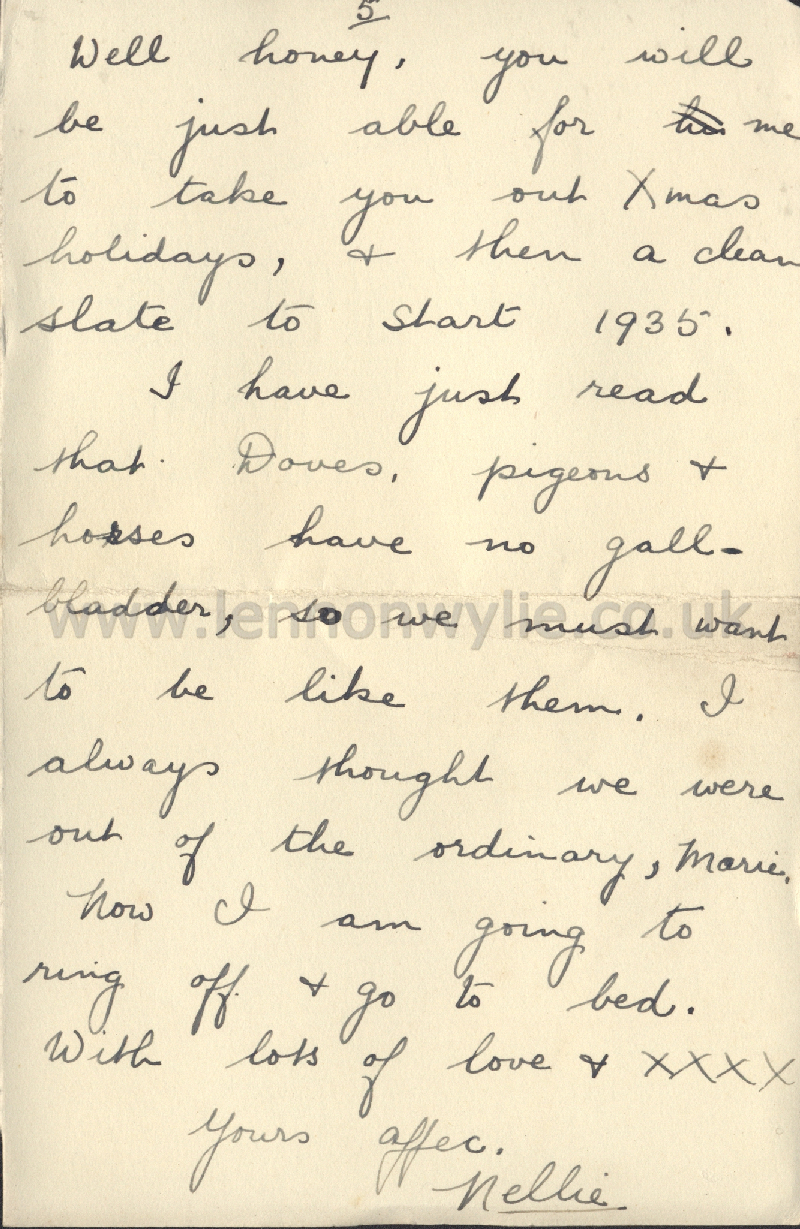 5
Well honey, you will
be just able for me
to take you out Xmas
holidays, & then a clean
slate to start 1935.
I have just read
that Doves, pigeons &
horses have no gall-
bladder, so we must want
www.lennonwylie.co.uk
to be like them. I
always thought we were
out of the ordinary, Marie.
Now I am going to
ring off & go to bed.
With lots of love & xxxx
Yours affec.
Nellie